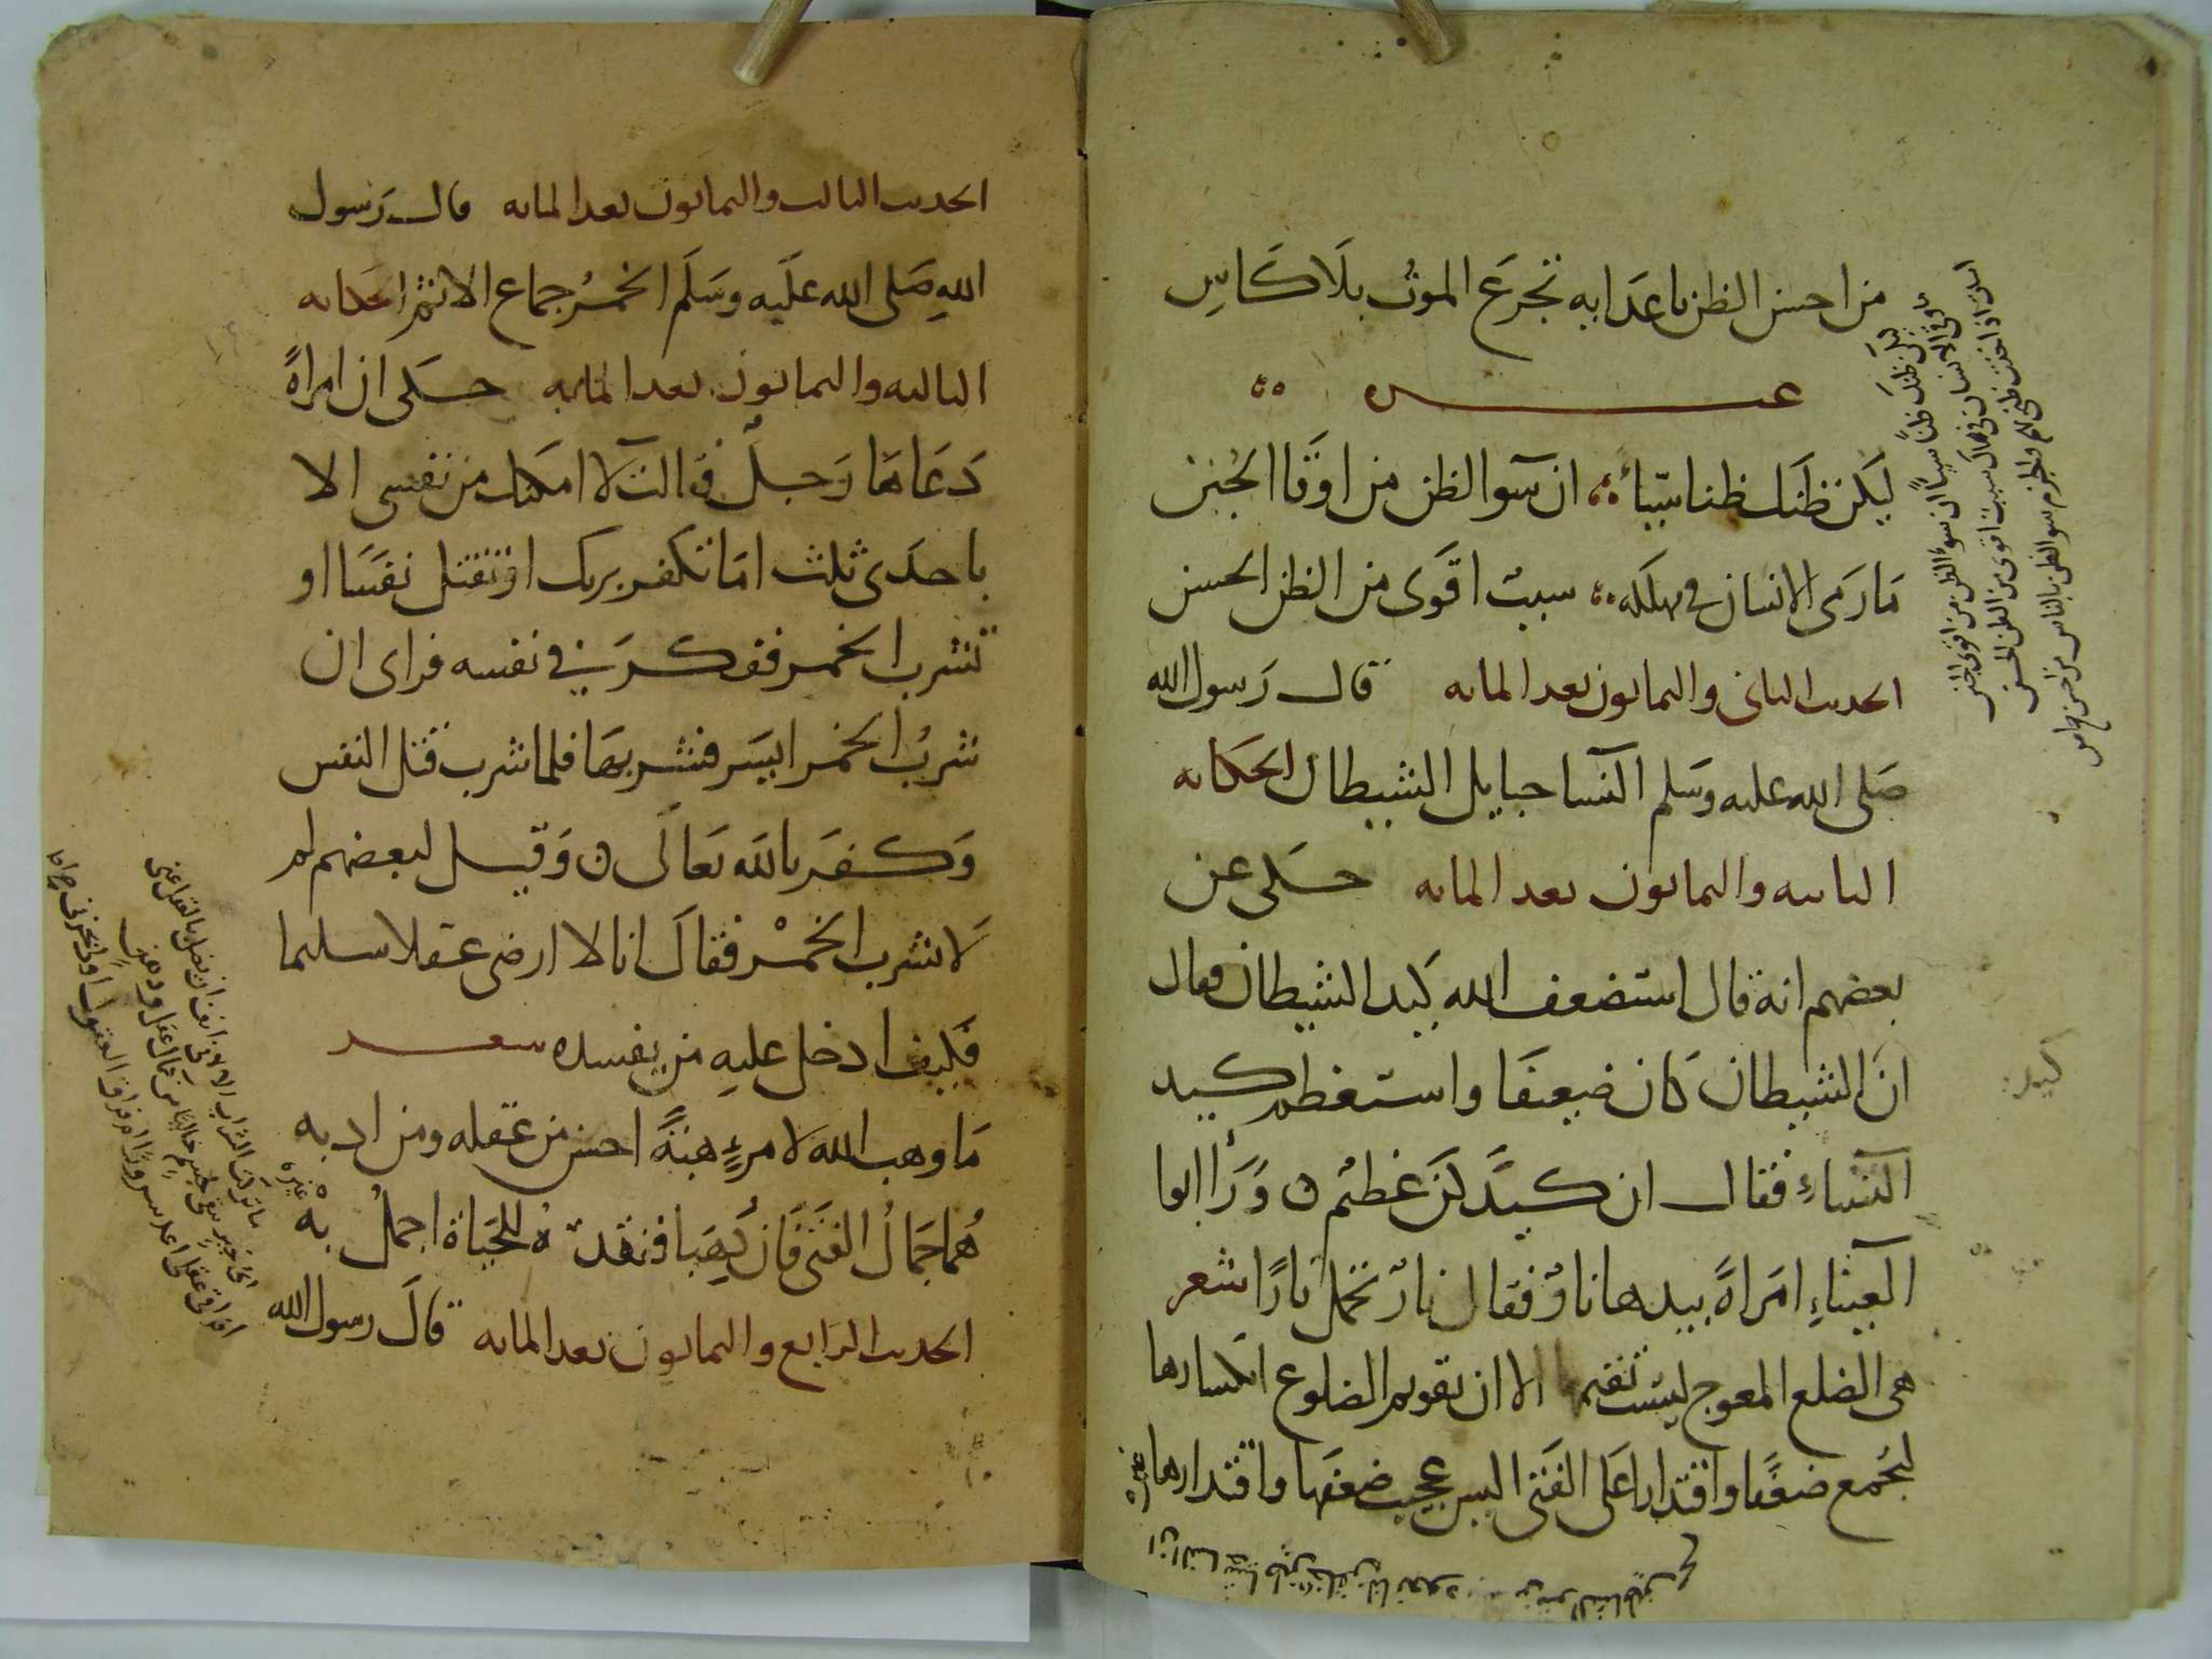 من احسن الظن باعدايه تجرع الموت بلا كاس
غيره
ليكن ظنك ظنا سيا ان سوا الظن من اوقا الجنن
ما رمى الانسان في مهلكه سبب اقوى من الظن الحسن
الحديث الثاني والثمانون بعد المايه قال رسول الله
صلى الله عليه وسلم النسا حبايل الشيطان الحكايه
الثانيه والثمانون بعد المايه حكى عن
بعضهم انه قال استضعف الله كيد الشيطان وقال
ان الشيطان كان ضعيفا واستعظم كيد
النساء فقال ان كيدكن عظيم ورا ابوا
العيناء امراة بيدها نار فقال نار تحمل نارا شعر
هى الضلع المعوج ليست تقيمها الا ان تقويم الضلوع انكسارها
لجمع ضعفا واقتدارا على الفتى اليس عجيب ضعفها واقتدارها
غيره
كيد
ليكن ظنك ظنا سيا ان سوء الظن من اقوى الجنن
ما رمى الانسان في مهلك سبب اقوى من الظن الحسن
الحديث الثالث والثمانون بعد المايه قال رسول
الله صلى الله عليه وسلم الخمر جماع الاثم الحكايه
الثالثه والثمانون بعد المايه حكى ان امراة
دعاها رجل فقالت لا امكنك من نفسى الا
باحدى ثلث اما تكفر بربك او تقتل نفسا او
تشرب الخمر ففكر في نفسه فراى ان
شرب الخمر ايسر فشربها فلما شرب قتل النفس
وكفر بالله تعالى وقيل لبعضهم لم
لا تشرب الخمر فقال انا لا ارضى عقلا سليما
فكيف ادخل عليه من يفسده شعر
ما وهب الله لامرء هبة احسن من عقله ومن ادبه
هما جمال الفتى فان ذهبا ففقده للحياة اجمل به
غيره
الحديث الرابع والثمانون بعد المايه قال رسول الله